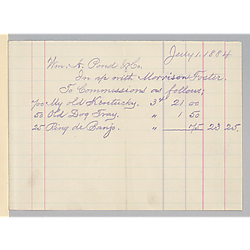 July 1. 1884
Wm. A. Pond & Co.
In a/c with Morrison Foster.
To Commissions as follows;
700 My Old Kentucky. 3ᵈ 21 00
50 Old Dog Tray. " 1 50
25 Ring de Banjo. " 75 23 25